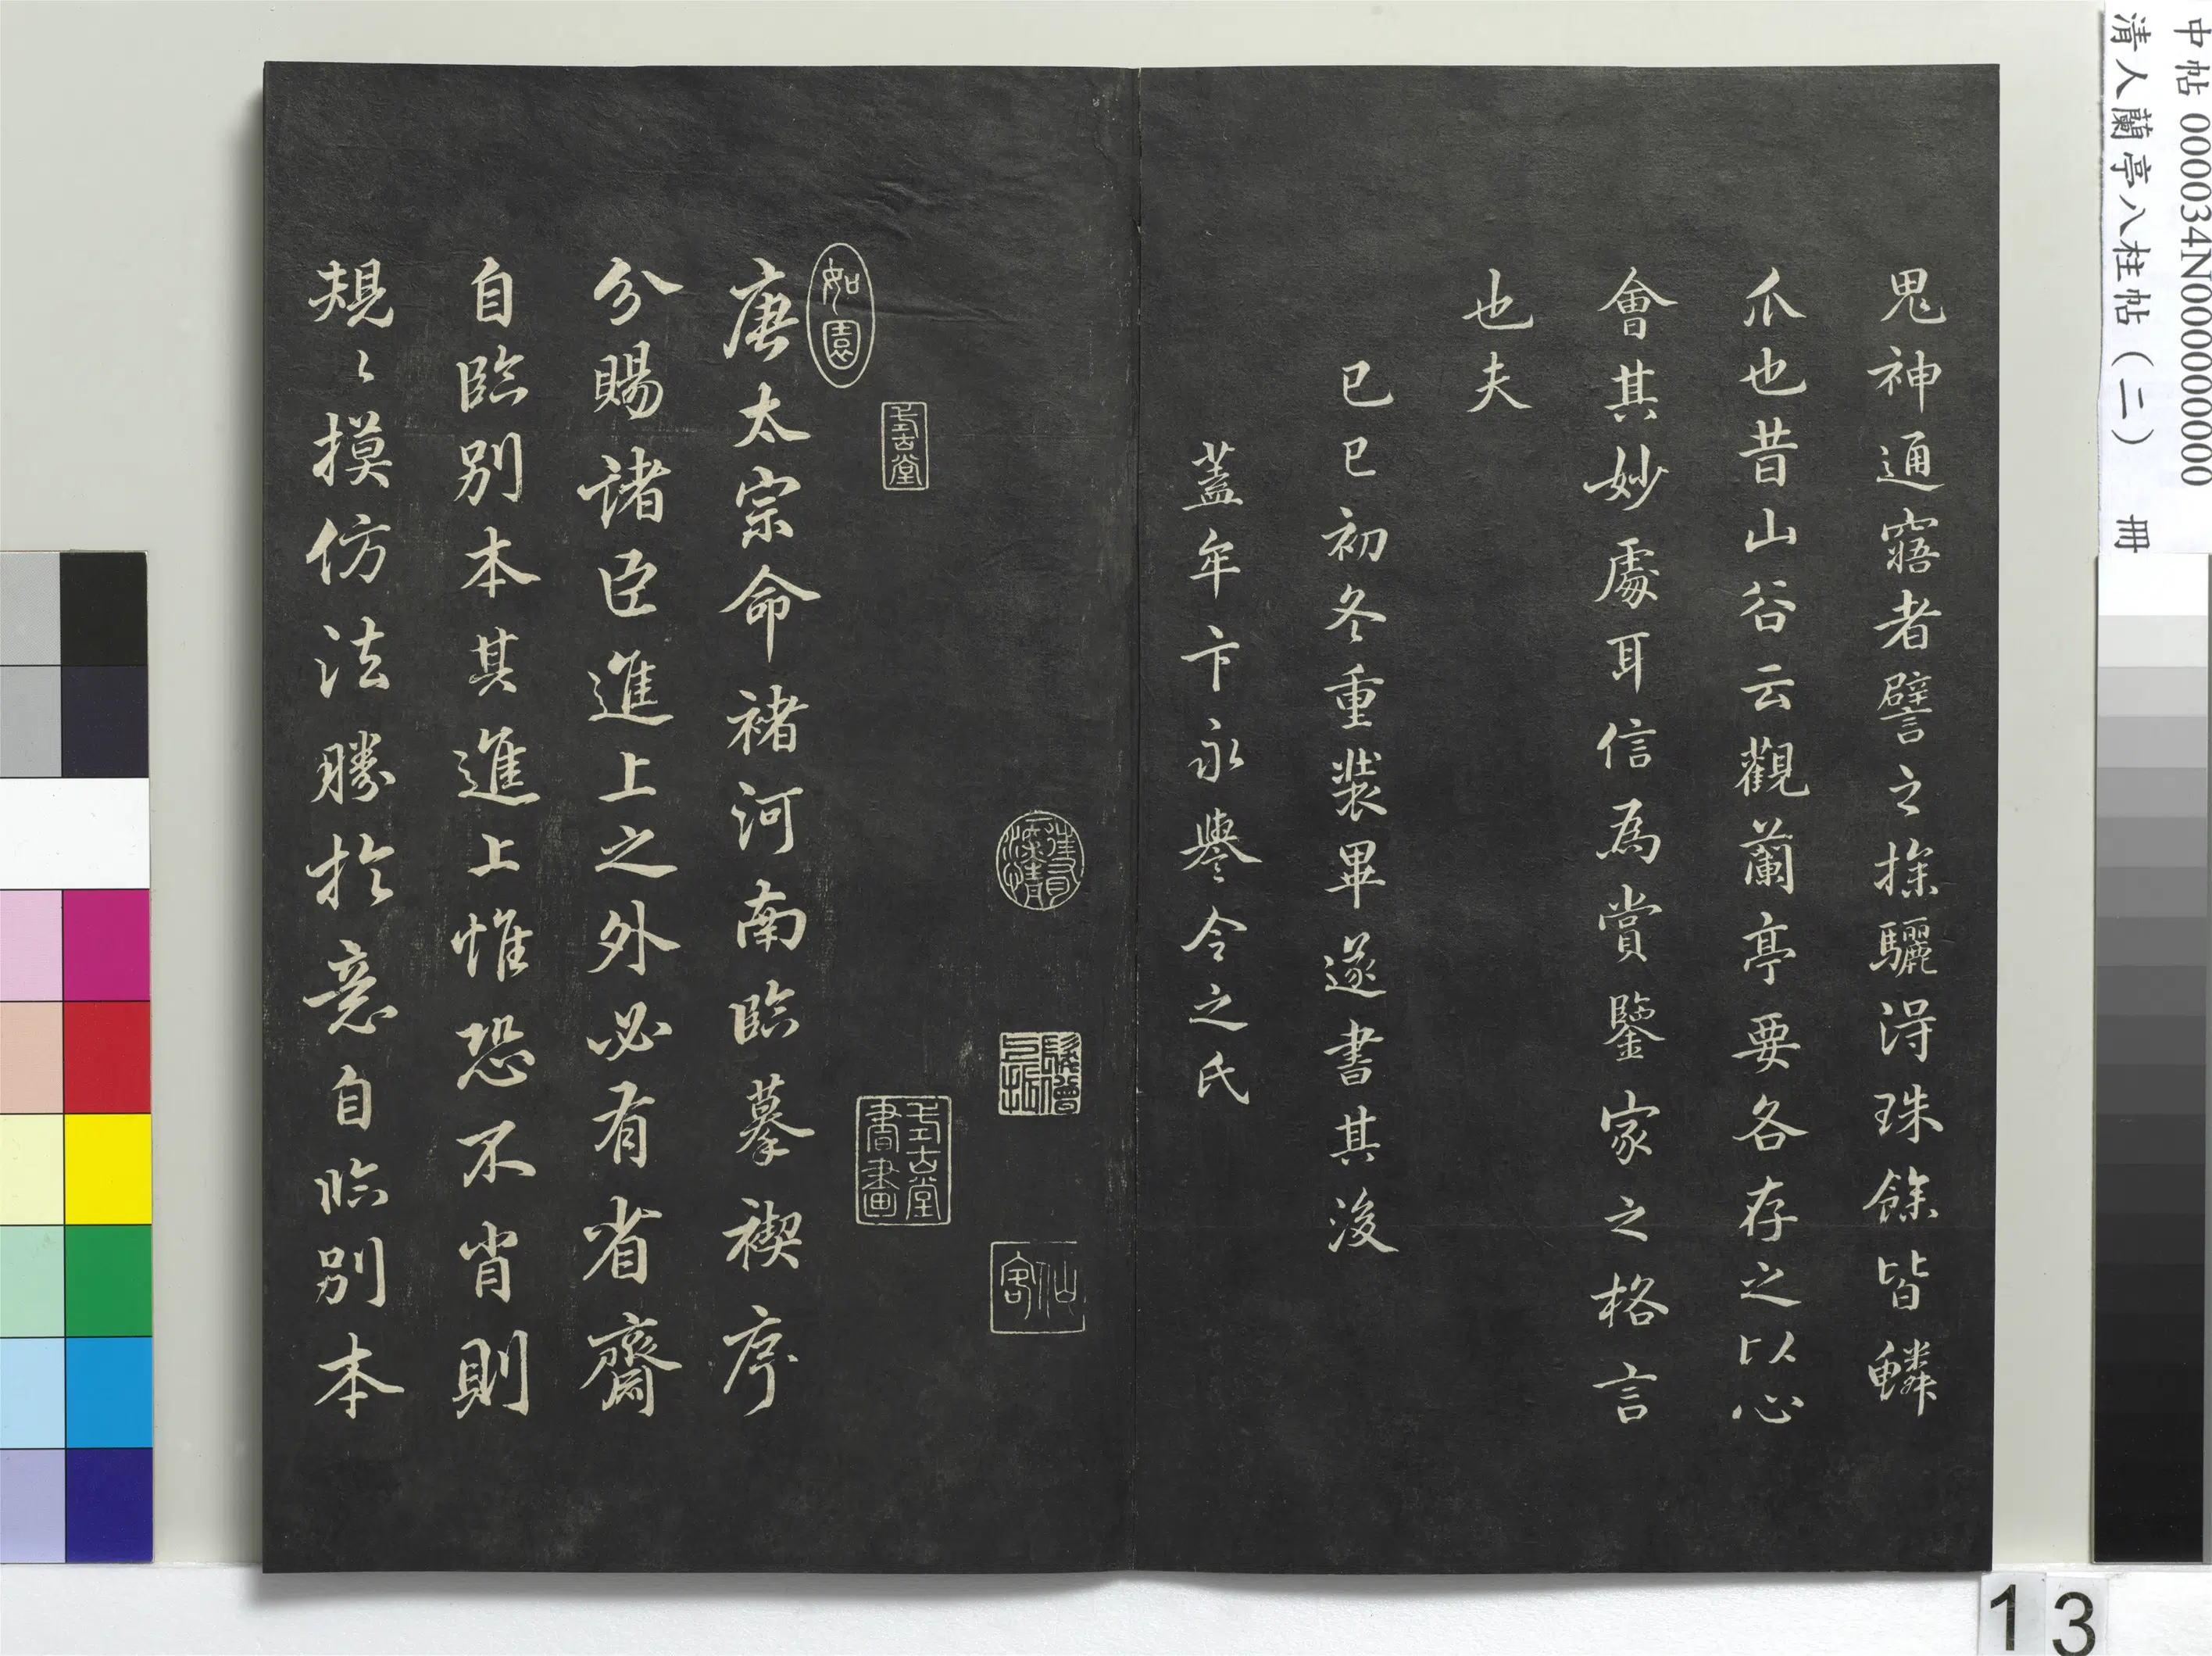 中帖 000034N000000000000
清人蘭亭八柱帖（二） 冊
鬼神通寤者譬之探驪得珠餘皆鱗
爪也昔山谷云觀蘭亭要各存之以心
會其妙處耳信為賞鑒家之格言
也夫
己巳初冬重裝畢遂書其後
蓋牟卞永譽令之氏
仙客
式古堂書畫
式古堂
如園
唐太宗命褚河南臨摹禊序
分賜諸臣進上之外必有省齋
自臨别本其進上惟恐不肖則
規〻摸仿法勝於意自臨别本
13